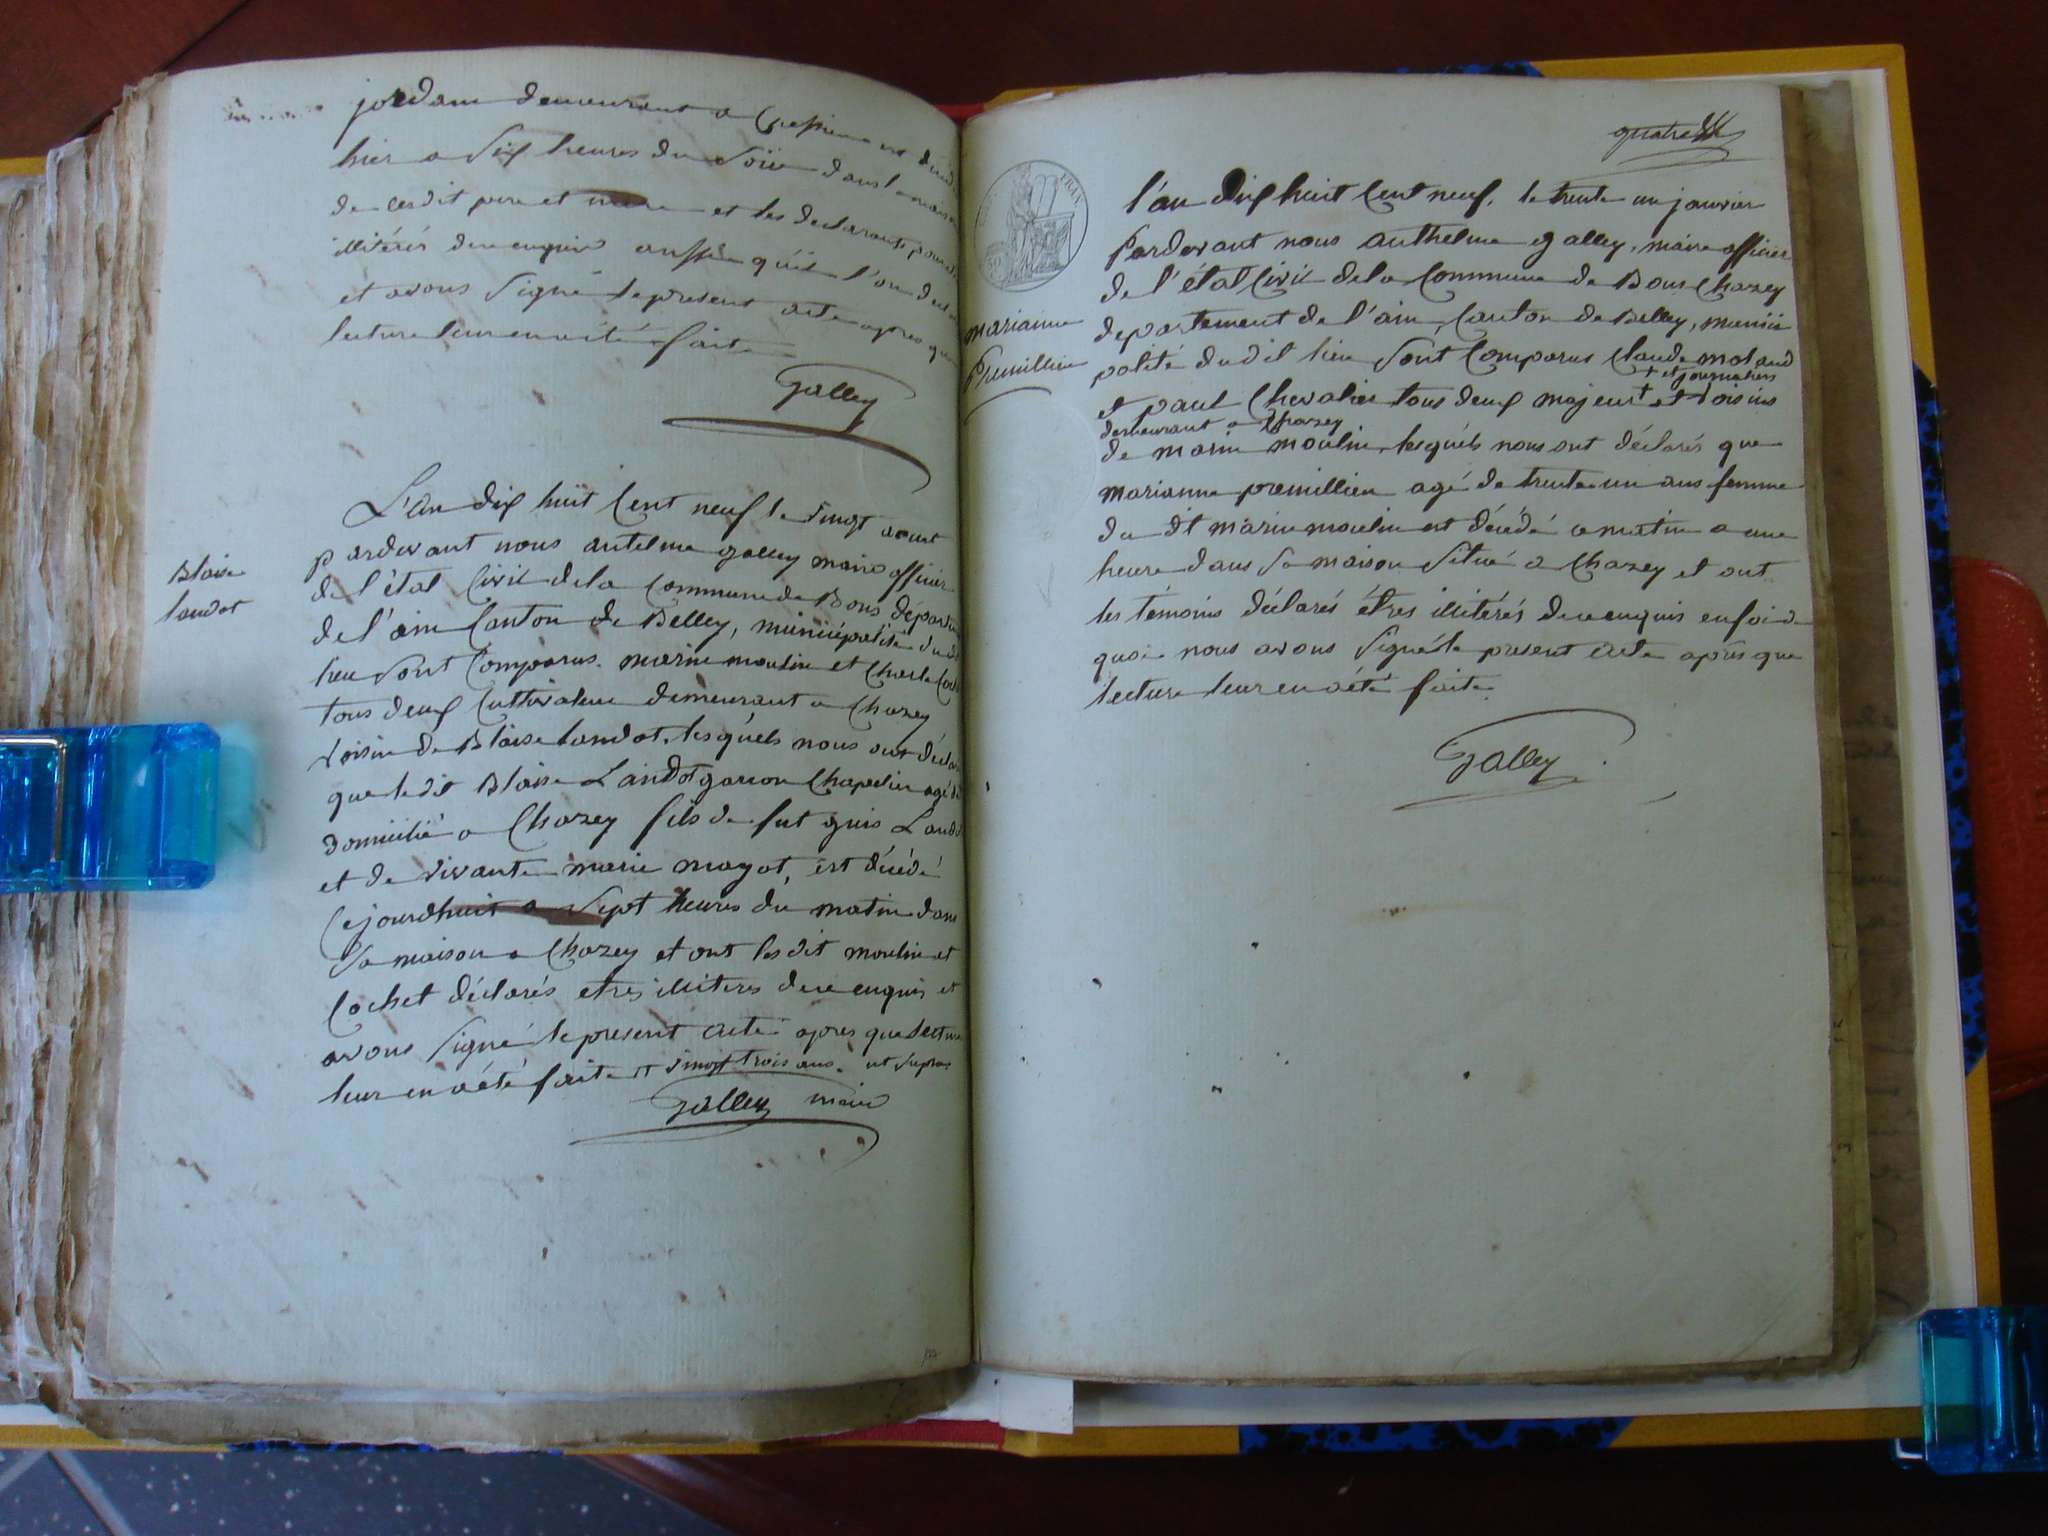 jordam demeurant a Cressieu est décédé
hier a Six heures du Soir dans la maison
de cesdit pere et mere et les declarants pour etre
illitérés de ce enquir aussi qu'il l'on declaré
et avons Signé le present acte apres que
lecture leur en a été faite
Galley
Blaise
landot
L'An dix huit Cent neuf le vingt aoust
pardevant nous antelme galley maire officier
de l'état Civil de la Commune de Bons départem
de l'ain Canton de Belley, municipalité dudit
lieu Sont Comparus marin moulin et Charle Coch
tous deux Cultivateur demeurant a Chazey
voisin de Blaise landot, lesquels nous ont déclar
que ledit Blaise Landot garcon Chapelier agé de
domicilié a Chazey fils de fut guis Landot
et de vivante marie magot, est décédé
Cejourdhuit a Sept heures du matin dans
Sa maison a Chazey et ont lesdit moulin et
Cochet déclarés etres illiteres de ce enquis et
avons Signé le present acte apres que Lecture
leur en a été faite vingt trois ans. ut supra
Galley maire
quatre
marianne
Premillieu
l'an dix huit Cent neuf, le trente un janvier
Pardevant nous anthelme galley, maire officier
de l'état Civil de la Commune de Bons Chazey
departement de l'ain, Canton de Belley, munici
palité dudit lieu Sont Comparus Claude molard
+ et journaliers
et paul Chevalier tous deux majeur + et voisins
demeurant a Chazey
de marin moulin, lesquels nous ont déclarés que
marianne premillieu agé de trente un ans femme
du dt marin moulin est décédé ce matin a une
heure dans Sa maison Situé a Chazey et ont
les témoins déclarés étres illitérés de ce enquis en foi de
quoi nous avons Signé le present acte apres que
lecture leur en a été faite
Galley